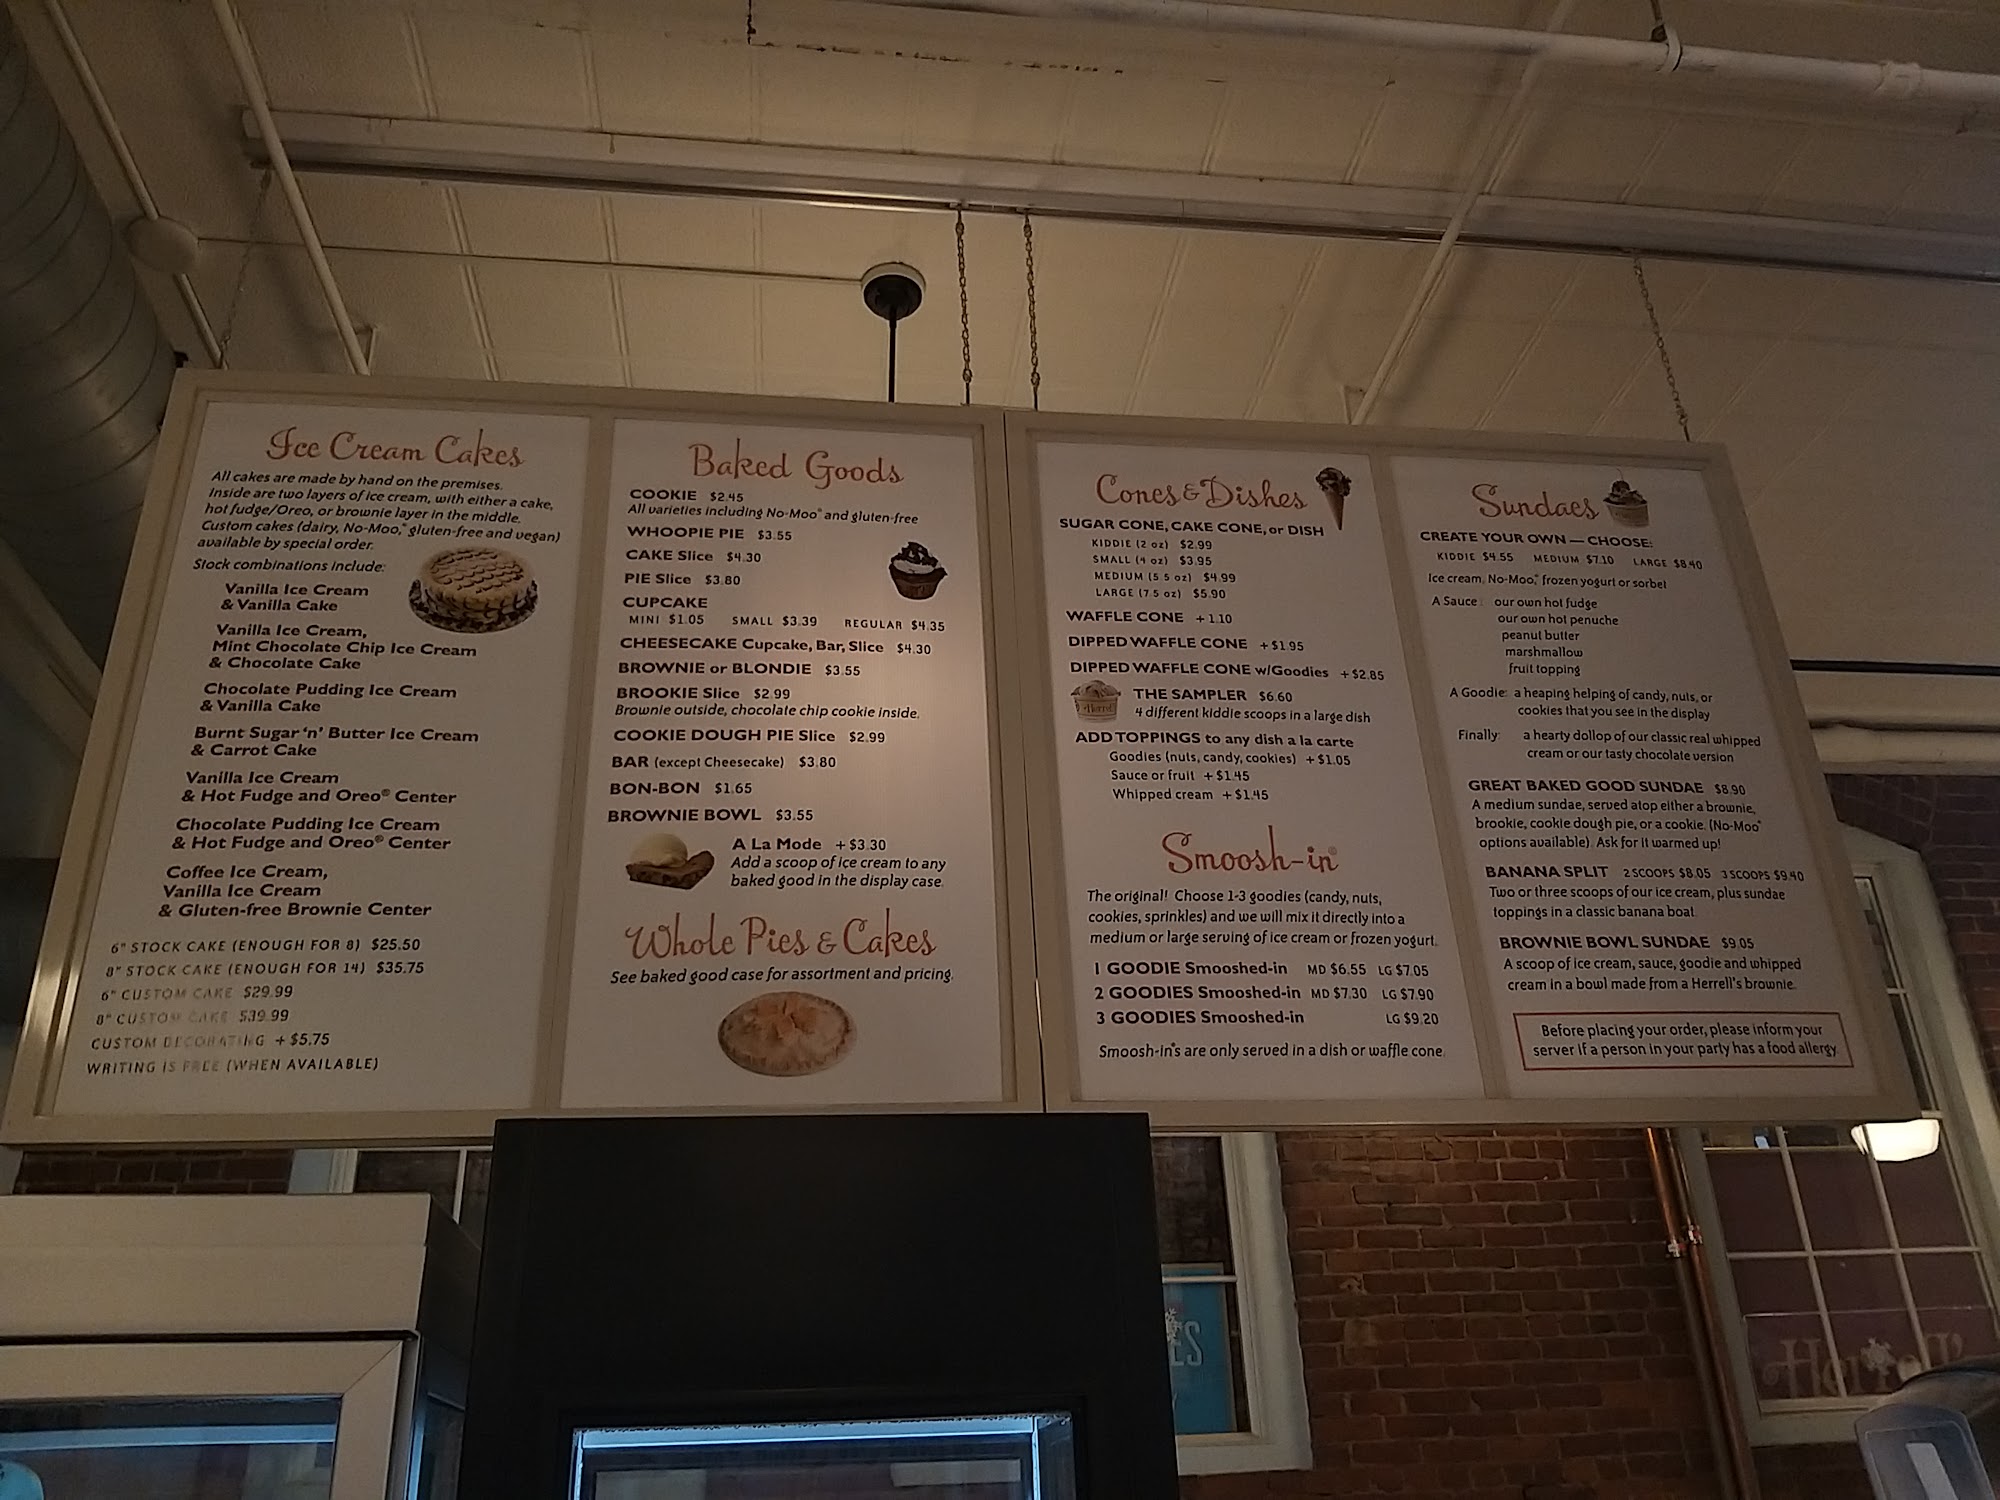 Ice Cream Cakes
All cakes are made by hand on the premises.
Inside are two layers of ice cream, with either a cake,
hot fudge/Oreo, or brownie layer in the middle.
Custom cakes (dairy, No-Moo,® gluten-free and vegan)
available by special order.
Stock combinations include:
Vanilla Ice Cream
& Vanilla Cake
Vanilla Ice Cream,
Mint Chocolate Chip Ice Cream
& Chocolate Cake
Chocolate Pudding Ice Cream
& Vanilla Cake
Burnt Sugar 'n' Butter Ice Cream
& Carrot Cake
Vanilla Ice Cream
& Hot Fudge and Oreo® Center
Chocolate Pudding Ice Cream
& Hot Fudge and Oreo® Center
Coffee Ice Cream,
Vanilla Ice Cream
& Gluten-free Brownie Center
6" STOCK CAKE (ENOUGH FOR 8) $25.50
8" STOCK CAKE (ENOUGH FOR 14) $35.75
6" CUSTOM CAKE $29.99
8" CUSTOM CAKE $39.99
CUSTOM DECORATING + $5.75
WRITING IS FREE (WHEN AVAILABLE)
Baked Goods
COOKIE $2.45
All varieties including No-Moo® and gluten-free
WHOOPIE PIE $3.55
CAKE Slice $4.30
PIE Slice $3.80
CUPCAKE
MINI $1.05 SMALL $3.39 REGULAR $4.35
CHEESECAKE Cupcake, Bar, Slice $4.30
BROWNIE or BLONDIE $3.55
BROOKIE Slice $2.99
Brownie outside, chocolate chip cookie inside.
COOKIE DOUGH PIE Slice $2.99
BAR (except Cheesecake) $3.80
BON-BON $1.65
BROWNIE BOWL $3.55
A La Mode + $3.30
Add a scoop of ice cream to any
baked good in the display case.
Whole Pies & Cakes
See baked good case for assortment and pricing.
Cones & Dishes
SUGAR CONE, CAKE CONE, or DISH
KIDDIE (2 oz) $2.99
SMALL (4 oz) $3.95
MEDIUM (5.5 oz) $4.99
LARGE (7.5 oz) $5.90
WAFFLE CONE + 1.10
DIPPED WAFFLE CONE + $1.95
DIPPED WAFFLE CONE w/Goodies + $2.85
THE SAMPLER $6.60
4 different kiddie scoops in a large dish
ADD TOPPINGS to any dish a la carte
Goodies (nuts, candy, cookies) + $1.05
Sauce or fruit + $1.45
Whipped cream + $1.45
Smoosh-in®
The original! Choose 1-3 goodies (candy, nuts,
cookies, sprinkles) and we will mix it directly into a
medium or large serving of ice cream or frozen yogurt.
1 GOODIE Smooshed-in MD $6.55 LG $7.05
2 GOODIES Smooshed-in MD $7.30 LG $7.90
3 GOODIES Smooshed-in LG $9.20
Smoosh-in®s are only served in a dish or waffle cone.
Sundaes
CREATE YOUR OWN — CHOOSE:
KIDDIE $4.55 MEDIUM $7.10 LARGE $8.40
Ice cream, No-Moo,® frozen yogurt or sorbet
A Sauce: our own hot fudge
our own hot penuche
peanut butter
marshmallow
fruit topping
A Goodie: a heaping helping of candy, nuts, or
cookies that you see in the display
Finally: a hearty dollop of our classic real whipped
cream or our tasty chocolate version
GREAT BAKED GOOD SUNDAE $8.90
A medium sundae, served atop either a brownie,
brookie, cookie dough pie, or a cookie. (No-Moo®
options available). Ask for it warmed up!
BANANA SPLIT 2 SCOOPS $8.05 3 SCOOPS $9.40
Two or three scoops of our ice cream, plus sundae
toppings in a classic banana boat.
BROWNIE BOWL SUNDAE $9.05
A scoop of ice cream, sauce, goodie and whipped
cream in a bowl made from a Herrell's brownie.
Before placing your order, please inform your
server if a person in your party has a food allergy.
Herrell's